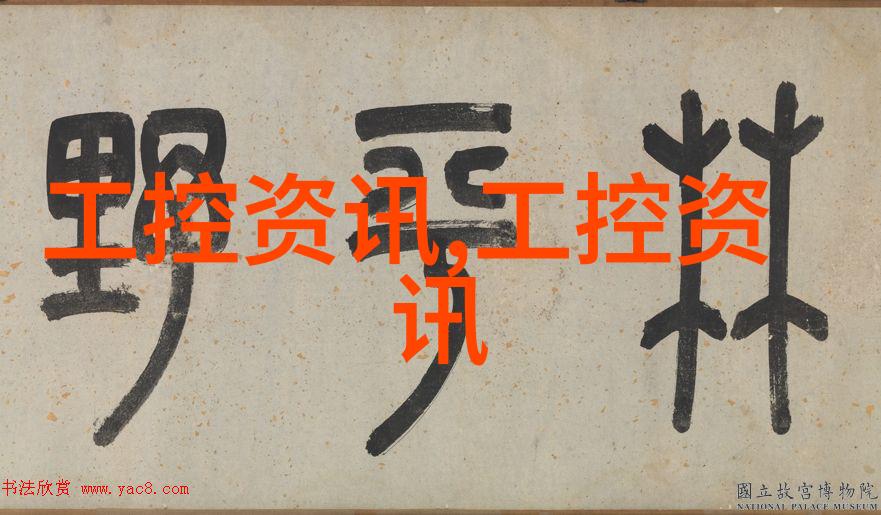 林平野
工控资讯,工控资
讯
书法欣赏 www.yac8.com
國立故宮博物院
NATIONAL PALACE MUSEUM